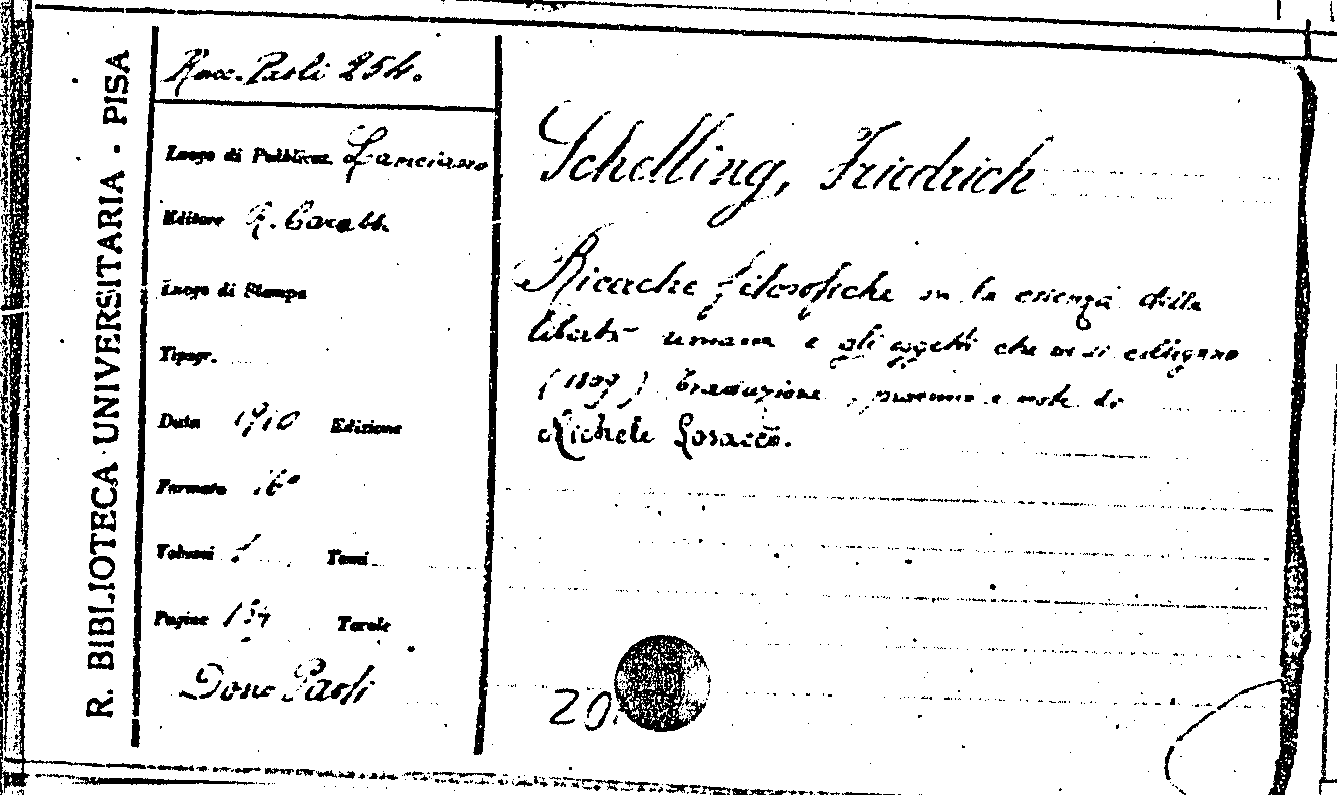 R. BIBLIOTECA UNIVERSITARIA - PISA
Racc. Paoli 254.
Luogo di Pubblicaz. Lanciano
Editore R. Carabb.
Luogo di Stampa
Tipogr.
Data 1910 Edizione
Formato 16°
Volumi 1 Tomi
Pagine Tavole
Dono Paoli
Schelling, Friedrich
Ricerche filosofiche su la essenza della
libertà umana e gli oggetti che vi si collegano
(1809) Traduzione, proemio e note di
Michele Losacco.
20